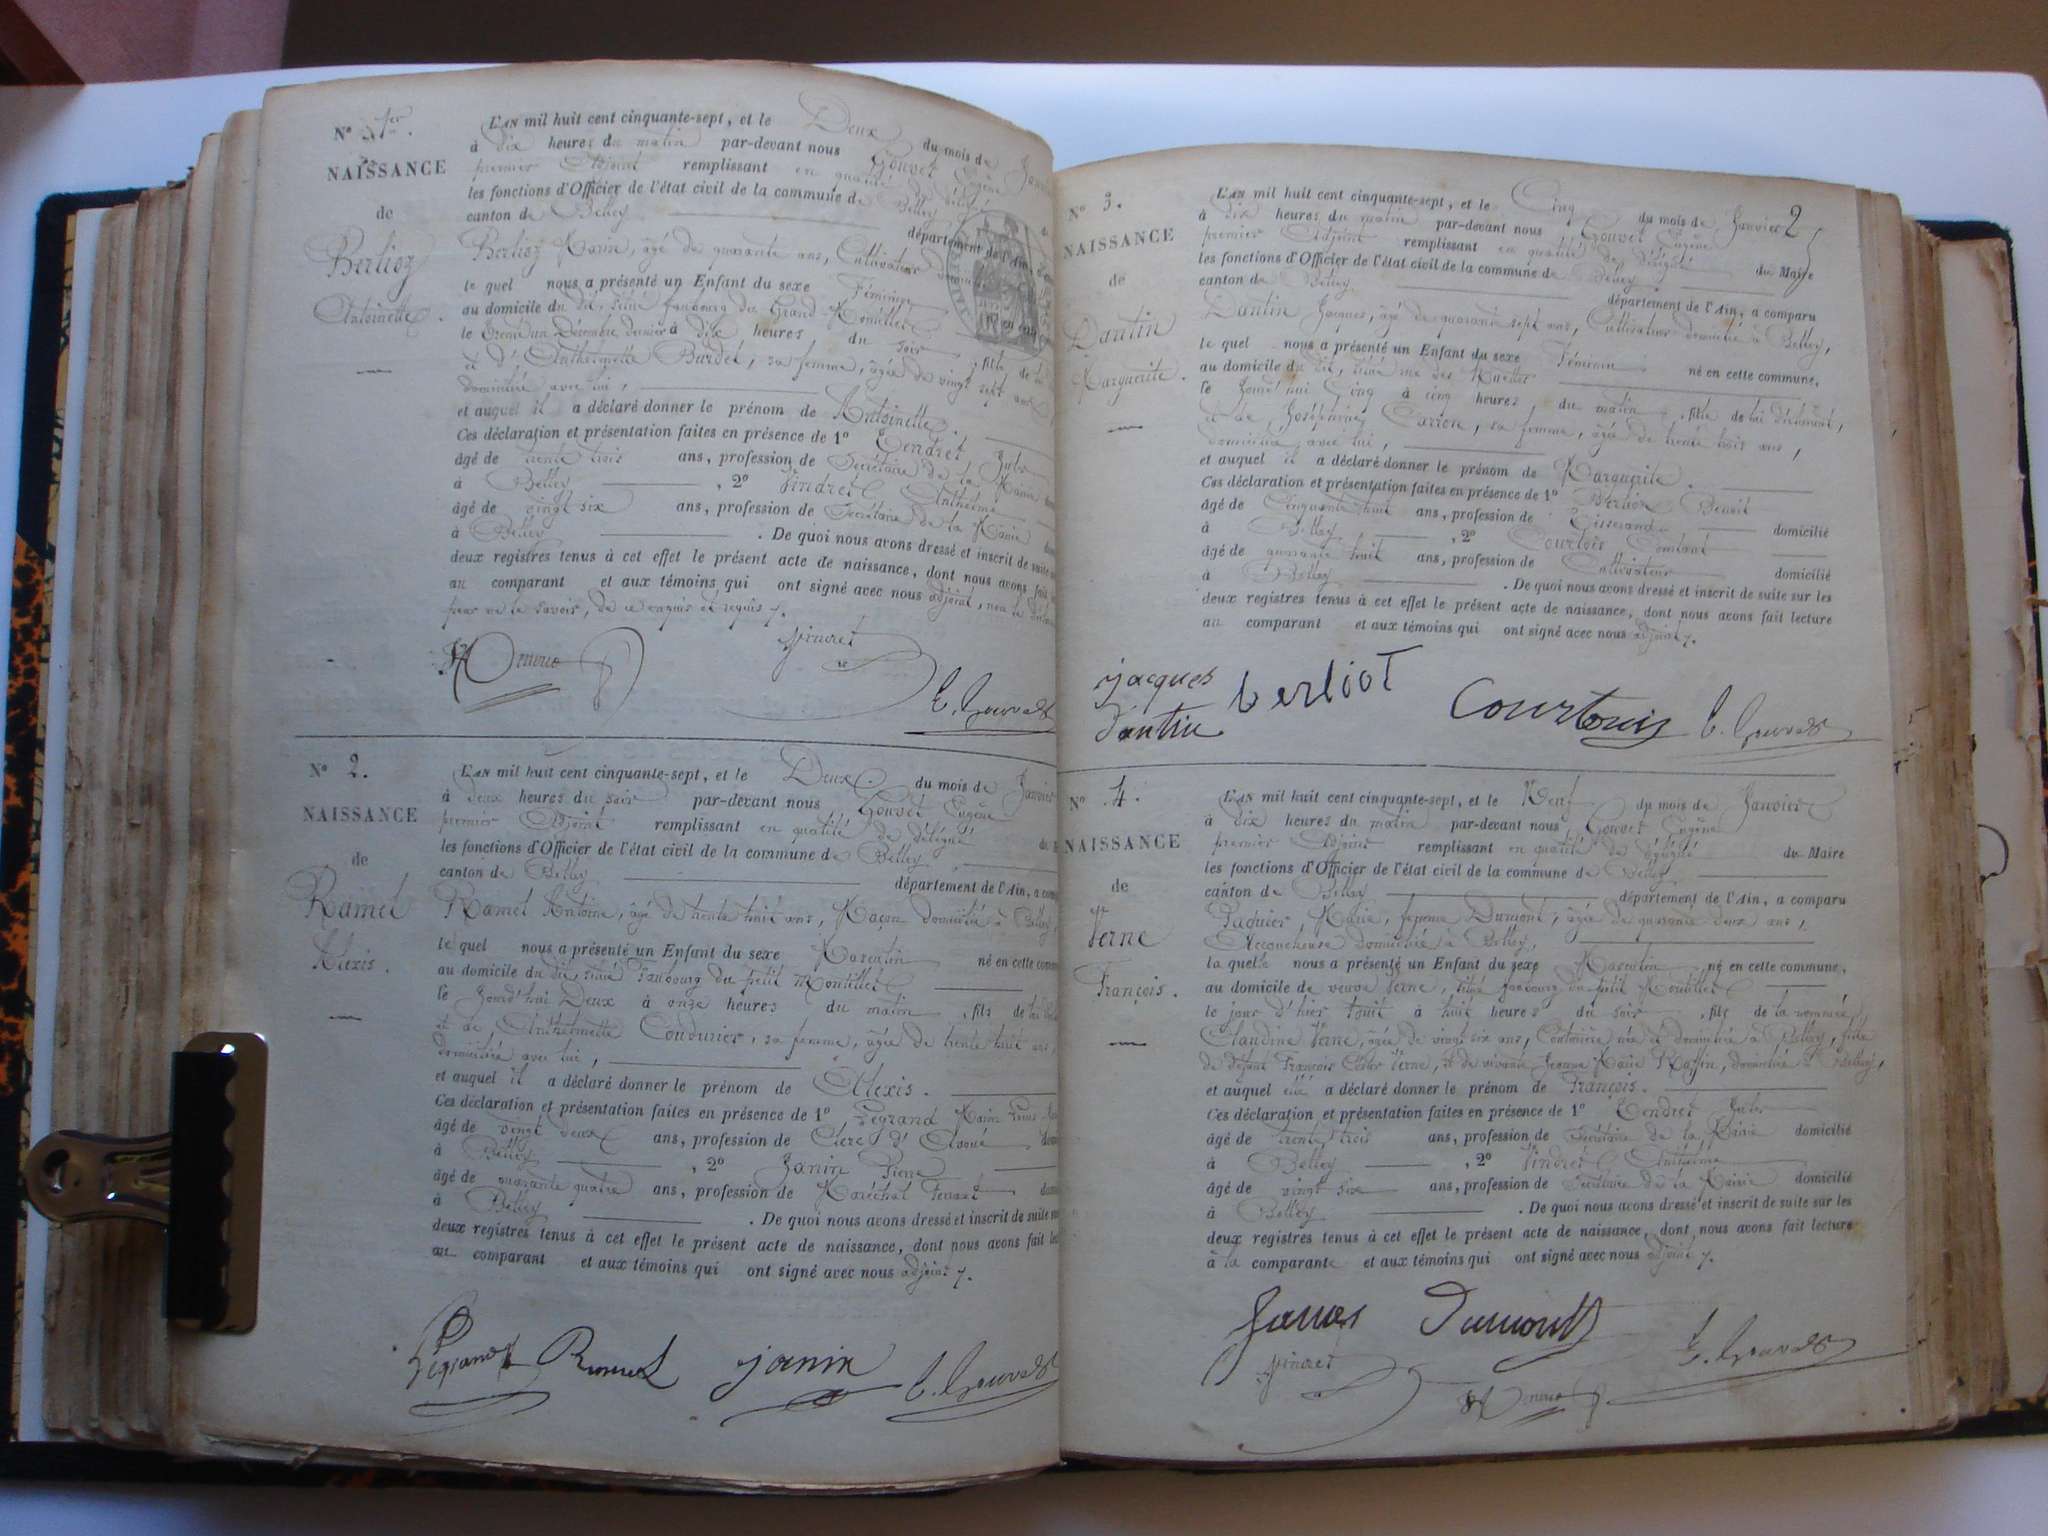 N° 1er.
NAISSANCE
de
Berlioz
Antoinette.
L'AN mil huit cent cinquante-sept, et le Deux du mois de Janvier
à dix heures du matin par-devant nous Gouvet Eugène
premier Adjoint remplissant en qualité de délégué
les fonctions d'Officier de l'état civil de la commune de Belley
canton de Belley département de l'Ain,
Berlioz âgé de quarante ans, Cultivateur
le quel nous a présenté un Enfant du sexe Féminin
au domicile du dit, situé faubourg du Grand
le trente un Décembre dernier à dix heures du soir, fille de
et d'Anthelmette Bardet, sa femme, âgée de vingt sept ans
domiciliée avec lui,
et auquel il a déclaré donner le prénom de Antoinette.
Ces déclaration et présentation faites en présence de 1° Tendret Jules
âgé de trente trois ans, profession de Secrétaire de la Mairie
à Belley, 2° Vindret Anthelme
âgé de vingt six ans, profession de Secrétaire de la Mairie
à Belley. De quoi nous avons dressé et inscrit de suite
deux registres tenus à cet effet le présent acte de naissance, dont nous avons fait
au comparant et aux témoins qui ont signé avec nous adjoint, non le
pour ne le savoir, de ce enquis et requis.
Vindret
E. Gouvet
N° 2.
NAISSANCE
de
Ramel
Alexis.
L'AN mil huit cent cinquante-sept, et le Deux du mois de Janvier
à deux heures du soir par-devant nous Gouvet Eugène
premier Adjoint remplissant en qualité de délégué du
les fonctions d'Officier de l'état civil de la commune de Belley
canton de Belley département de l'Ain, a com
Ramel Antoine, âgé de trente huit ans, Maçon domicilié à Belley,
le quel nous a présenté un Enfant du sexe Masculin né en cette comm
au domicile du dit, situé Faubourg du petit Montillet
le Jourd'hui Deux à onze heures du matin, fils de lui
et de Anthelmette Coudurier, sa femme, âgée de trente huit ans,
domiciliée avec lui,
et auquel il a déclaré donner le prénom de Alexis.
Ces déclaration et présentation faites en présence de 1° Legrand
âgé de vingt deux ans, profession de Clerc d'Avoué
à Belley, 2° Janin Pierre
âgé de quarante quatre ans, profession de Maréchal ferrant
à Belley. De quoi nous avons dressé et inscrit de suite
deux registres tenus à cet effet le présent acte de naissance, dont nous avons fait lec
au comparant et aux témoins qui ont signé avec nous adjoint.
Legrand Ramel janin E. Gouvet
2
N° 3.
NAISSANCE
de
Dantin
Marguerite.
L'AN mil huit cent cinquante-sept, et le Cinq du mois de Janvier
à dix heures du matin par-devant nous Gouvet Eugène
premier Adjoint remplissant en qualité de délégué du Maire
les fonctions d'Officier de l'état civil de la commune de Belley
canton de Belley département de l'Ain, a comparu
Dantin Jacques, âgé de quarante sept ans, Cultivateur domicilié à Belley,
le quel nous a présenté un Enfant du sexe Féminin né en cette commune,
au domicile du dit, situé rue des
le Jourd'hui Cinq à cinq heures du matin, fille de lui déclarant,
et de Joséphine Carron, sa femme, âgée de trente trois ans,
domiciliée avec lui,
et auquel il a déclaré donner le prénom de Marguerite.
Ces déclaration et présentation faites en présence de 1° Berliot Benoit
âgé de Cinquante huit ans, profession de Tisserand domicilié
à Belley, 2° Courtois Constant
âgé de quarante huit ans, profession de Cultivateur domicilié
à Belley. De quoi nous avons dressé et inscrit de suite sur les
deux registres tenus à cet effet le présent acte de naissance, dont nous avons fait lecture
au comparant et aux témoins qui ont signé avec nous adjoint.
jacques
dantin berliot Courtois E. Gouvet
N° 4.
NAISSANCE
de
Verne
François.
L'AN mil huit cent cinquante-sept, et le Neuf du mois de Janvier
à dix heures du matin par-devant nous Gouvet Eugène
premier Adjoint remplissant en qualité de délégué du Maire
les fonctions d'Officier de l'état civil de la commune de Belley
canton de Belley département de l'Ain, a comparu
Marie, femme Dumont, âgée de quarante deux ans,
Accoucheuse domiciliée à Belley,
la quelle nous a présenté un Enfant du sexe Masculin né en cette commune,
au domicile de veuve Verne, situé faubourg du petit Montillet
le jour d'hier huit à huit heures du soir, fils de la nommée
Claudine Verne, âgée de vingt six ans, Couturière née et domiciliée à Belley, fille
de défunt François Verne, et de vivante Jeanne Marie domiciliée à Belley,
et auquel elle a déclaré donner le prénom de François.
Ces déclaration et présentation faites en présence de 1° Tendret Jules
âgé de trente trois ans, profession de Secrétaire de la Mairie domicilié
à Belley, 2° Vindret Anthelme
âgé de vingt six ans, profession de Secrétaire de la Mairie domicilié
à Belley. De quoi nous avons dressé et inscrit de suite sur les
deux registres tenus à cet effet le présent acte de naissance, dont nous avons fait lecture
à la comparante et aux témoins qui ont signé avec nous adjoint.
Dumont E. Gouvet
Vindret